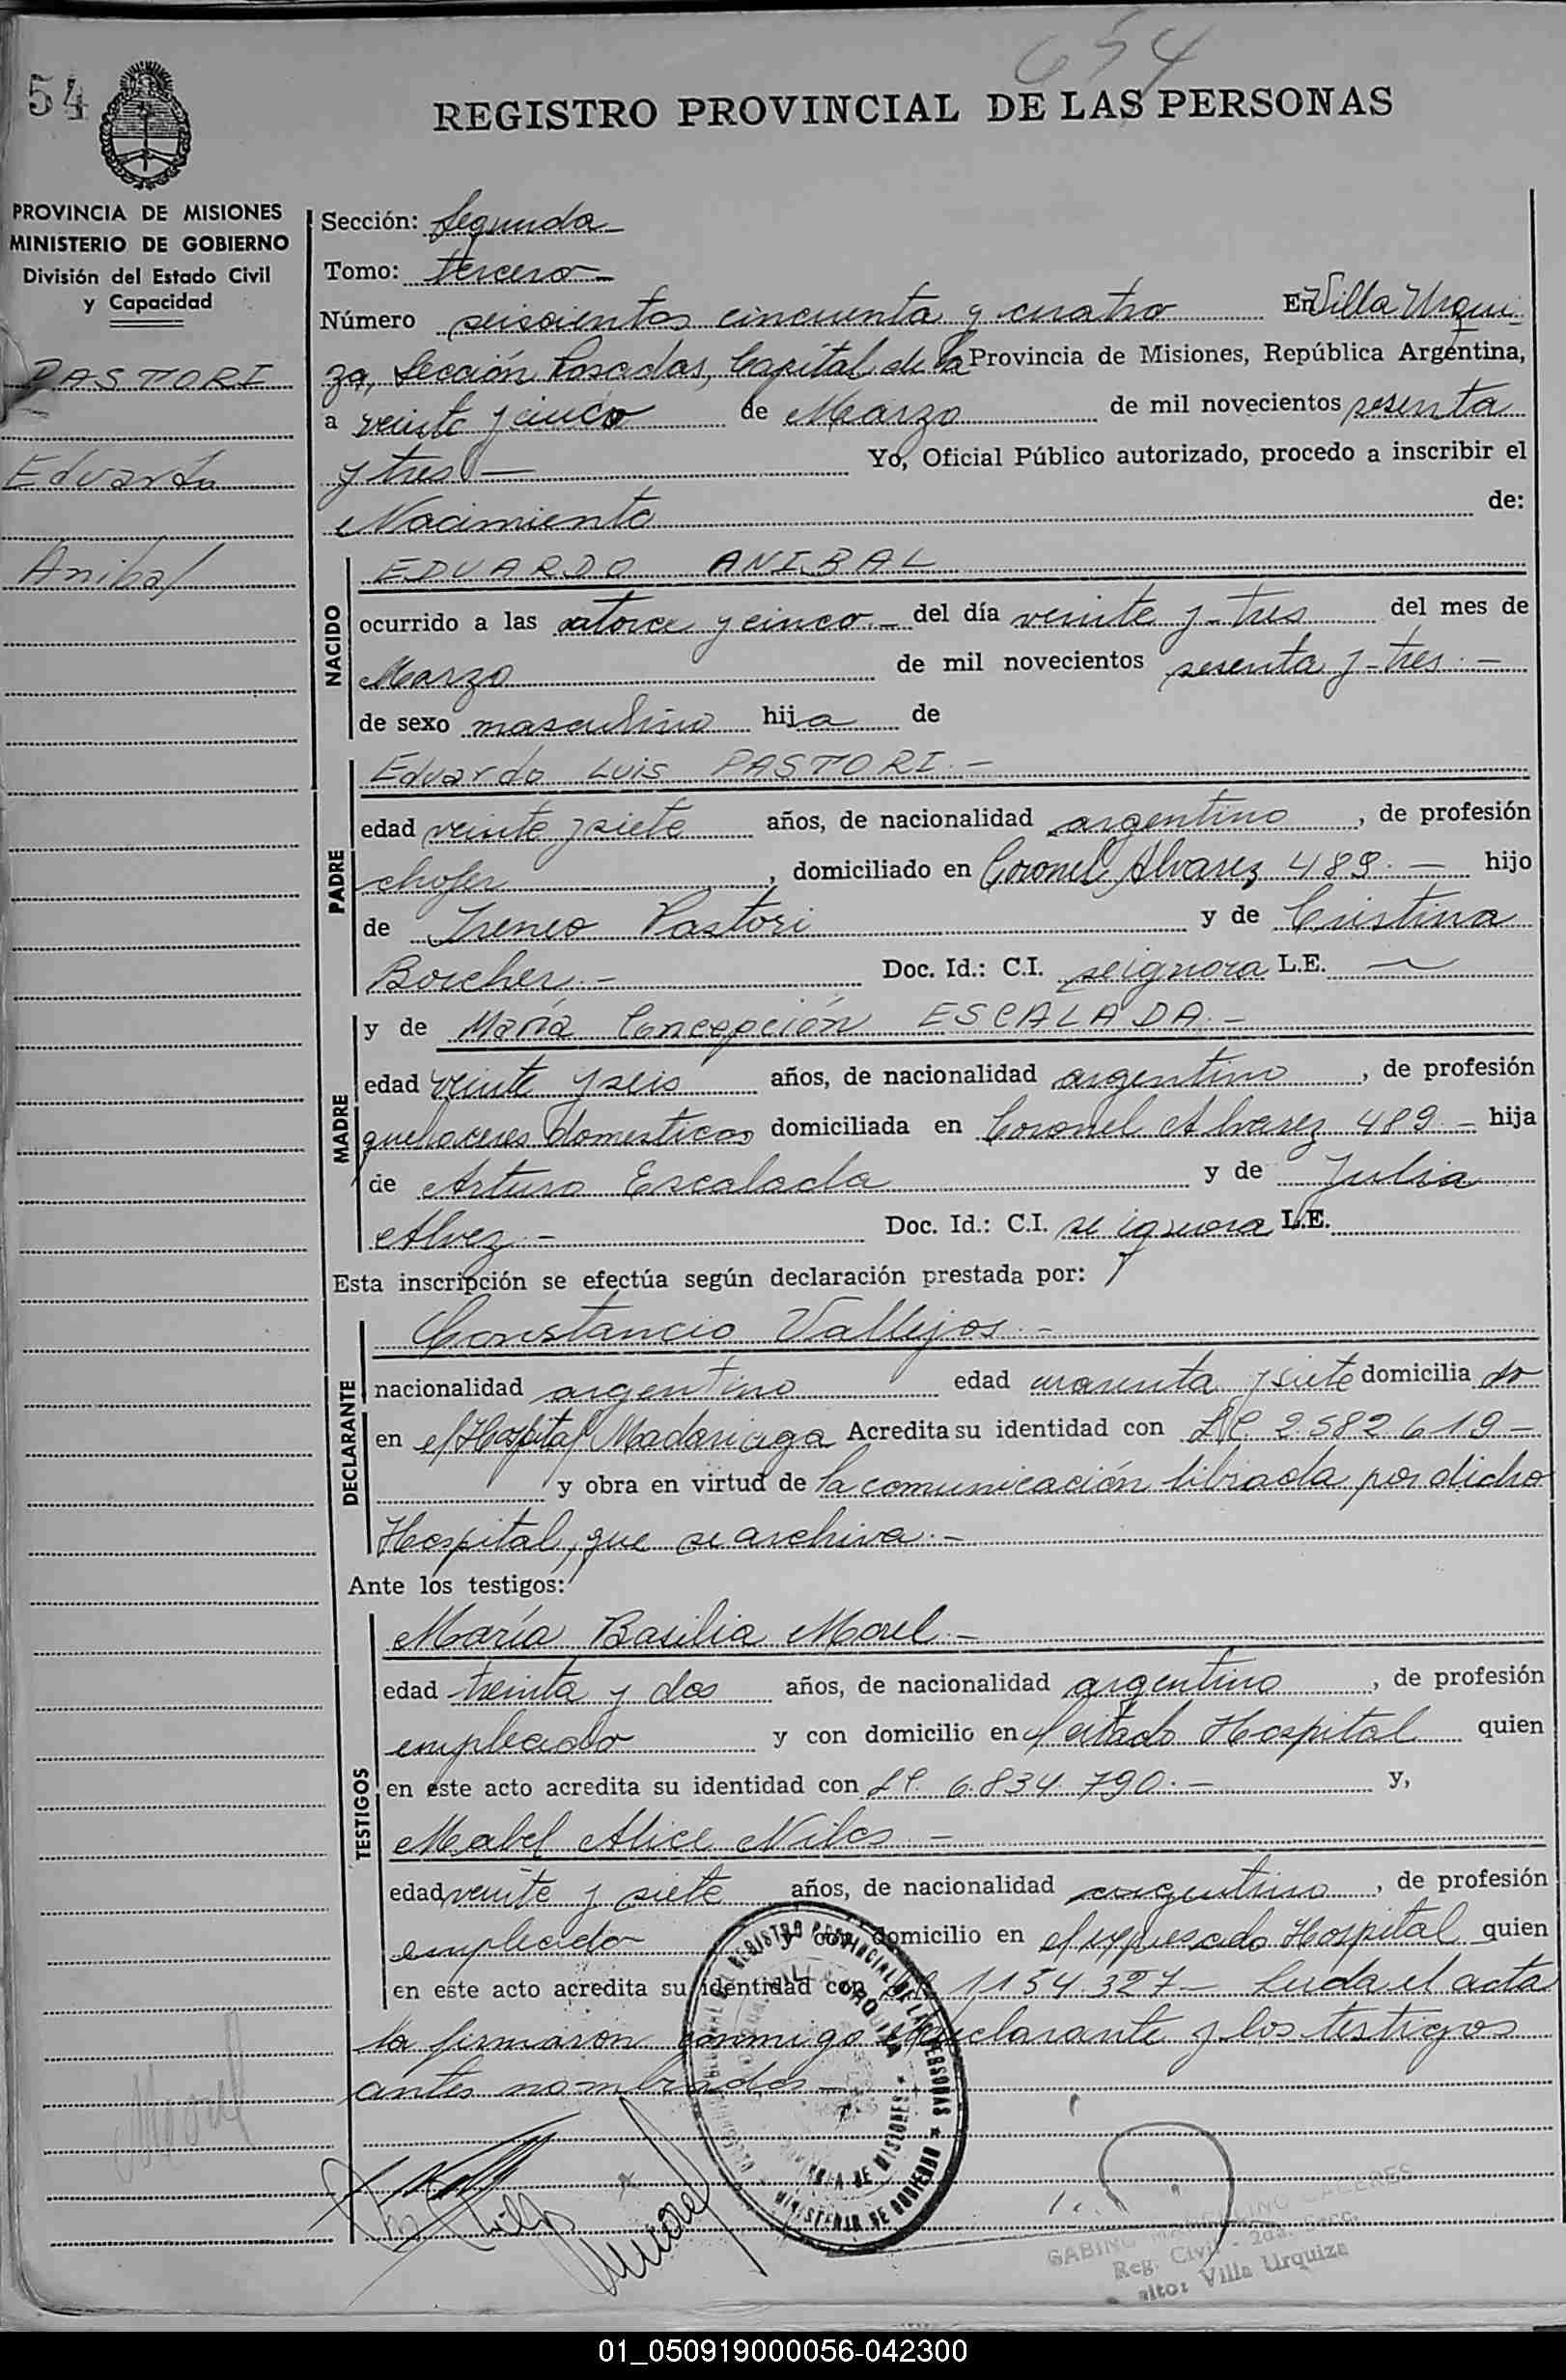 654
54
REGISTRO PROVINCIAL DE LAS PERSONAS
PROVINCIA DE MISIONES
MINISTERIO DE GOBIERNO
División del Estado Civil
y Capacidad
PASTORI
Eduardo
Anibal
Sección: Segunda
Tomo: tercero
Número seiscientos cincuenta y cuatro En Villa Urqui-
za, Sección Posadas, Capital de la Provincia de Misiones, República Argentina,
a veinte y cinco de Marzo de mil novecientos sesenta
y tres — Yo, Oficial Público autorizado, procedo a inscribir el
Nacimiento de:
NACIDO
EDUARDO ANIBAL
ocurrido a las catorce y cinco.- del día veinte y tres del mes de
Marzo de mil novecientos sesenta y tres.-
de sexo masculino hija de
PADRE
Eduardo Luis PASTORI.-
edad veinte y siete años, de nacionalidad argentino, de profesión
chofer, domiciliado en Coronel Alvarez 489.- hijo
de Ireneo Pastori y de Cristina
Borcher.- Doc. Id.: C.I. se ignora L.E. —
MADRE
y de María Concepción ESCALADA.-
edad veinte y seis años, de nacionalidad argentino, de profesión
quehaceres domesticos domiciliada en Coronel Alvarez 489.- hija
de Arturo Escalada y de Julia
Alvez.- Doc. Id.: C.I. se ignora L.E.
Esta inscripción se efectúa según declaración prestada por:
DECLARANTE
Constancio Vallejos.-
nacionalidad argentino edad cuarenta y siete domicilia do
en el Hospital Madariaga Acredita su identidad con L.E. 2.582.619-
y obra en virtud de la comunicación librada por dicho
Hospital, que se archiva.-
Ante los testigos:
TESTIGOS
María Basilia Morel.-
edad treinta y dos años, de nacionalidad argentino, de profesión
empleado y con domicilio en el citado Hospital quien
en este acto acredita su identidad con L.C. 6.834.790.- y,
Mabel Alice
edad veinte y siete años, de nacionalidad argentino, de profesión
empleado y con domicilio en el expresado Hospital quien
en este acto acredita su identidad con 1154.327- Leida el acta
la firmaron conmigo el declarante y los testigos
antes nombrados
REGISTRO PROVINCIAL DE LAS PERSONAS
VILLA URQUIZA
PROVINCIA DE MISIONES
MINISTERIO DE GOBIERNO
Morel
GABINO CACERES
Reg. Civil - 2da. Secc.
Villa Urquiza
01_050919000056-042300